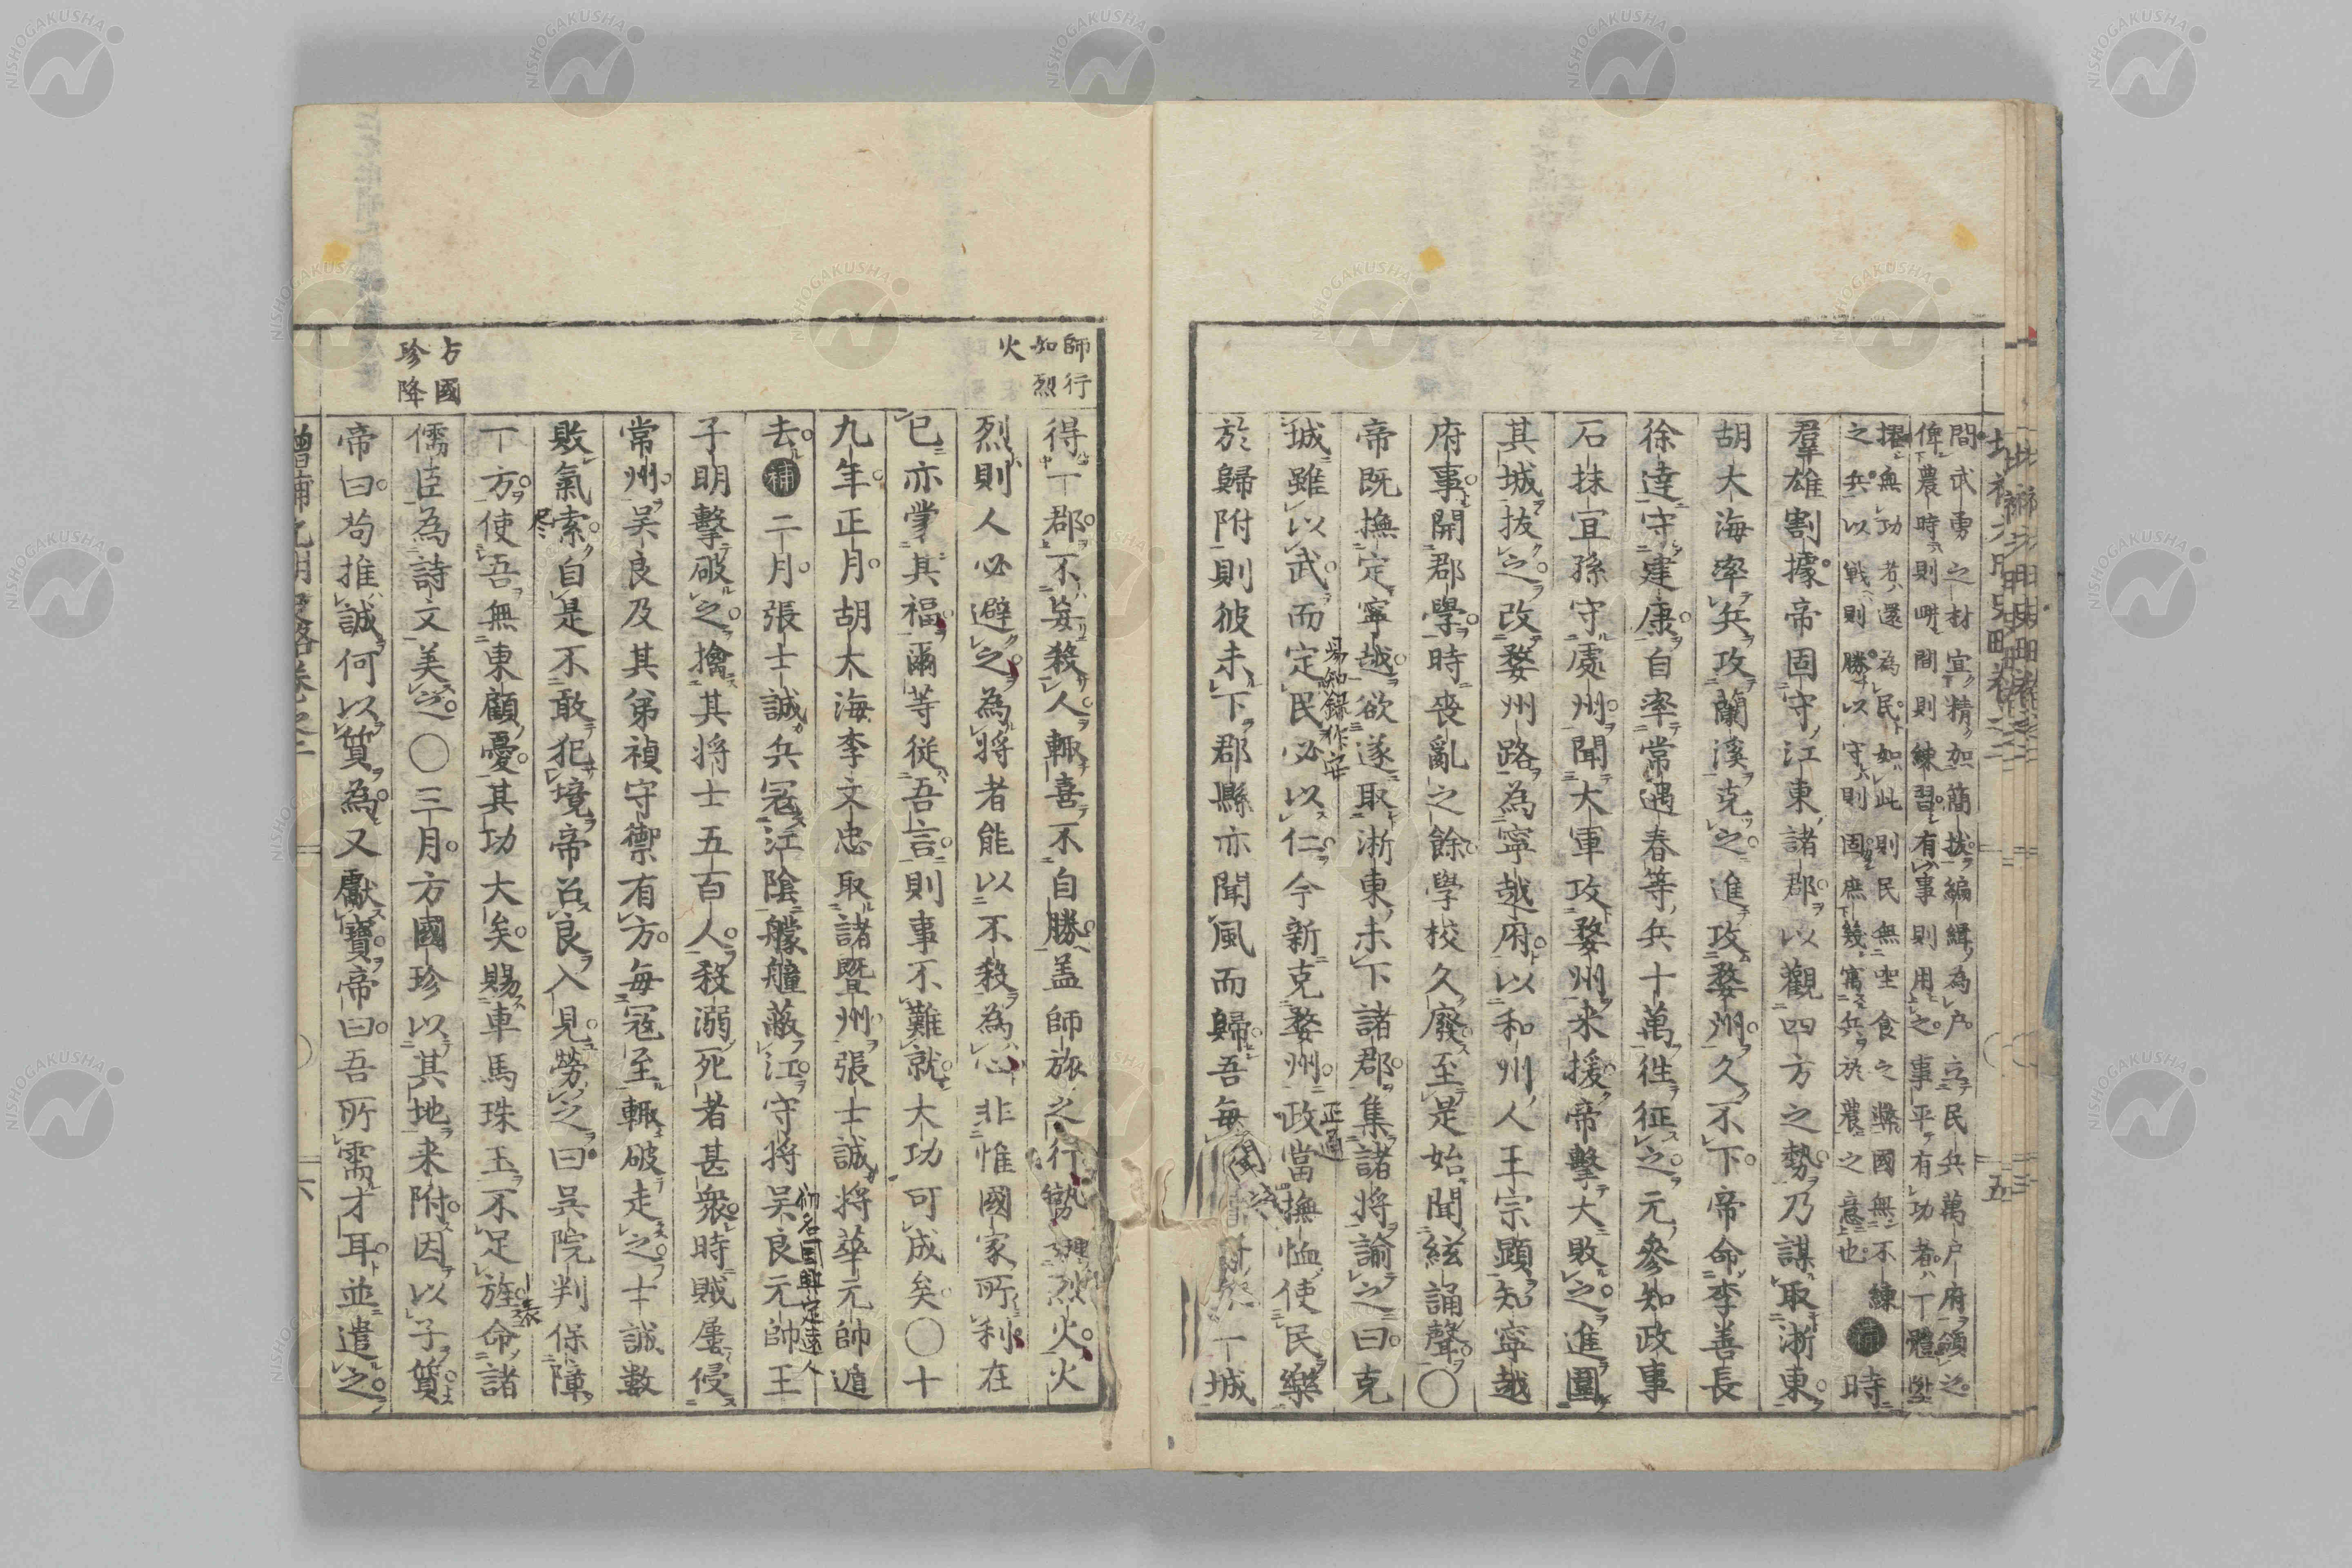 間武勇之材宜精加簡拔編緝為戶立民兵萬戶府領之
俾農時則畊間則練習有事則用之事平有功者一體陞
擢無功者還為民如此則民無坐食之獘國無不練
之兵以戰則勝以守則固庶幾寓兵於農之意也
補時
羣雄割據帝固守江東諸郡以觀四方之勢乃謀取浙東
胡大海率兵攻蘭溪克之進攻婺州久不下帝命李善長
徐達守建康自率常遇春等兵十萬徃征之元參知政事
石抹宜孫守處州聞大軍攻婺州来援帝擊大敗之進圍
其城拔之改婺州路為寧越府以和州人王宗顕知寧越
府事開郡學時喪亂之餘學校久廢至是始聞絃誦聲〇
帝既撫定寧越欲遂取浙東未下諸郡集諸将諭之曰克
城雖以武而定民必以仁今新克婺州政當撫恤使民樂
易知録作安
正通
於歸附則彼未下郡縣亦聞風而歸吾每聞一城
師行
如烈
火
得一郡不妄殺人輙喜不自勝盖師旅之行勢烈火火
烈則人必避之為将者能以不殺為心非惟國家所利在
已亦蒙其福爾等従吾言則事不難就大功可成矣〇十
九年正月胡大海李文忠取諸暨州張士誠将華元帥遁
去補二月張士誠兵冦江陰艨艟蔽江守将吴良元帥王
初名国興定遠人
子明擊破之擒其将士五百人殺溺死者甚衆時賊屢侵
常州吴良及其弟禎守禦有方每冦至輙破走之士誠數
敗氣索自是不敢犯境帝召良入見勞之曰吴院判保障
尽
一方使吾無東顧憂其功大矣賜車馬珠玉不足旌命諸
方國
珍降
儒臣為詩文美之〇三月方國珍以其地来附因以子質
帝曰苟推誠何以質為又獻寶帝曰吾所需才耳並遣之